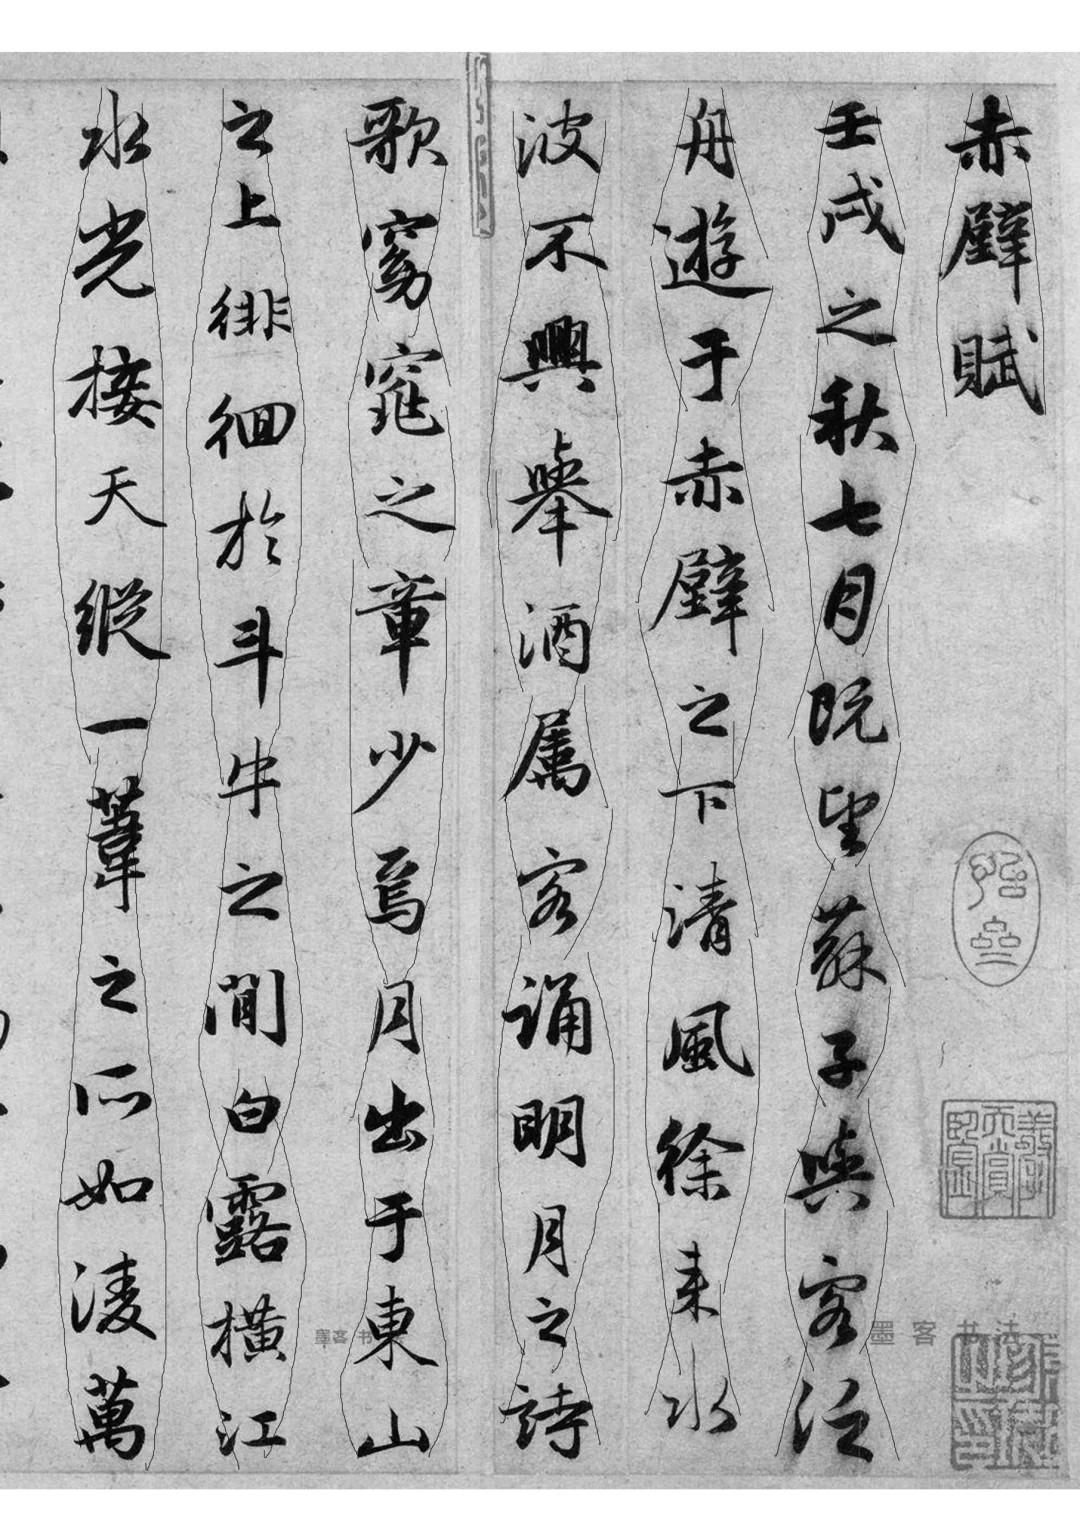 赤壁賦
壬戌之秋七月既望蘇子與客泛
舟遊于赤壁之下清風徐来水
波不興舉酒属客誦明月之詩
歌窈窕之章少焉月出于東山
之上徘徊於斗牛之間白露横江
水光接天縱一葦之所如凌萬
墨客书法
墨客书